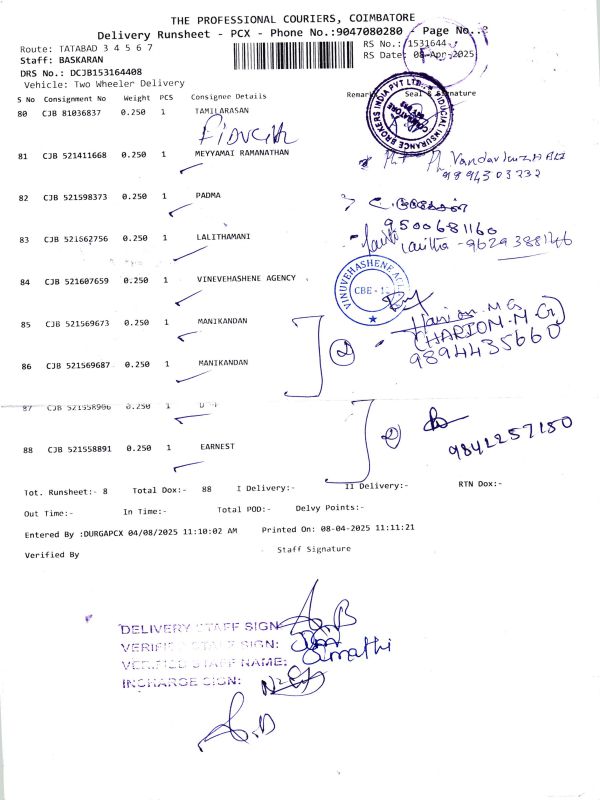 THE PROFESSIONAL COURIERS, COIMBATORE
Delivery Runsheet - PCX - Phone No.:9047080280 - Page No.:
Route: TATABAD 3 4 5 6 7
RS No.: 1531644
Staff: BASKARAN
RS Date: 08-Apr-2025
DRS No.: DCJB153164408
Vehicle: Two Wheeler Delivery
S No Consignment No Weight PCS Consignee Details Remark Seal & Signature
80 CJB 81036837 0.250 1 TAMILARASAN
FIDUCIAL INSURANCE BROKERS INDIA PVT LTD.,
81 CJB 521411668 0.250 1 MEYYAMAI RAMANATHAN
9894303232
82 CJB 521598373 0.250 1 PADMA
9500681160
83 CJB 521562756 0.250 1 LALITHAMANI
Lalitha - 9629388146
84 CJB 521607659 0.250 1 VINEVEHASHENE AGENCY
VINUVEHASHENE
CBE - 12
85 CJB 521569673 0.250 1 MANIKANDAN
2
(HARIOM.M.G)
9894435660
86 CJB 521569687 0.250 1 MANIKANDAN
87 CJB 521558906 0.250 1
2
9842257150
88 CJB 521558891 0.250 1 EARNEST
Tot. Runsheet:- 8 Total Dox:- 88 I Delivery:- II Delivery:- RTN Dox:-
Out Time:- In Time:- Total POD:- Delvy Points:-
Entered By :DURGAPCX 04/08/2025 11:10:02 AM Printed On: 08-04-2025 11:11:21
Verified By Staff Signature
DELIVERY STAFF SIGN
VERIFIED STAFF SIGN:
VERIFIED STAFF NAME: Gomathi
INCHARGE SIGN: